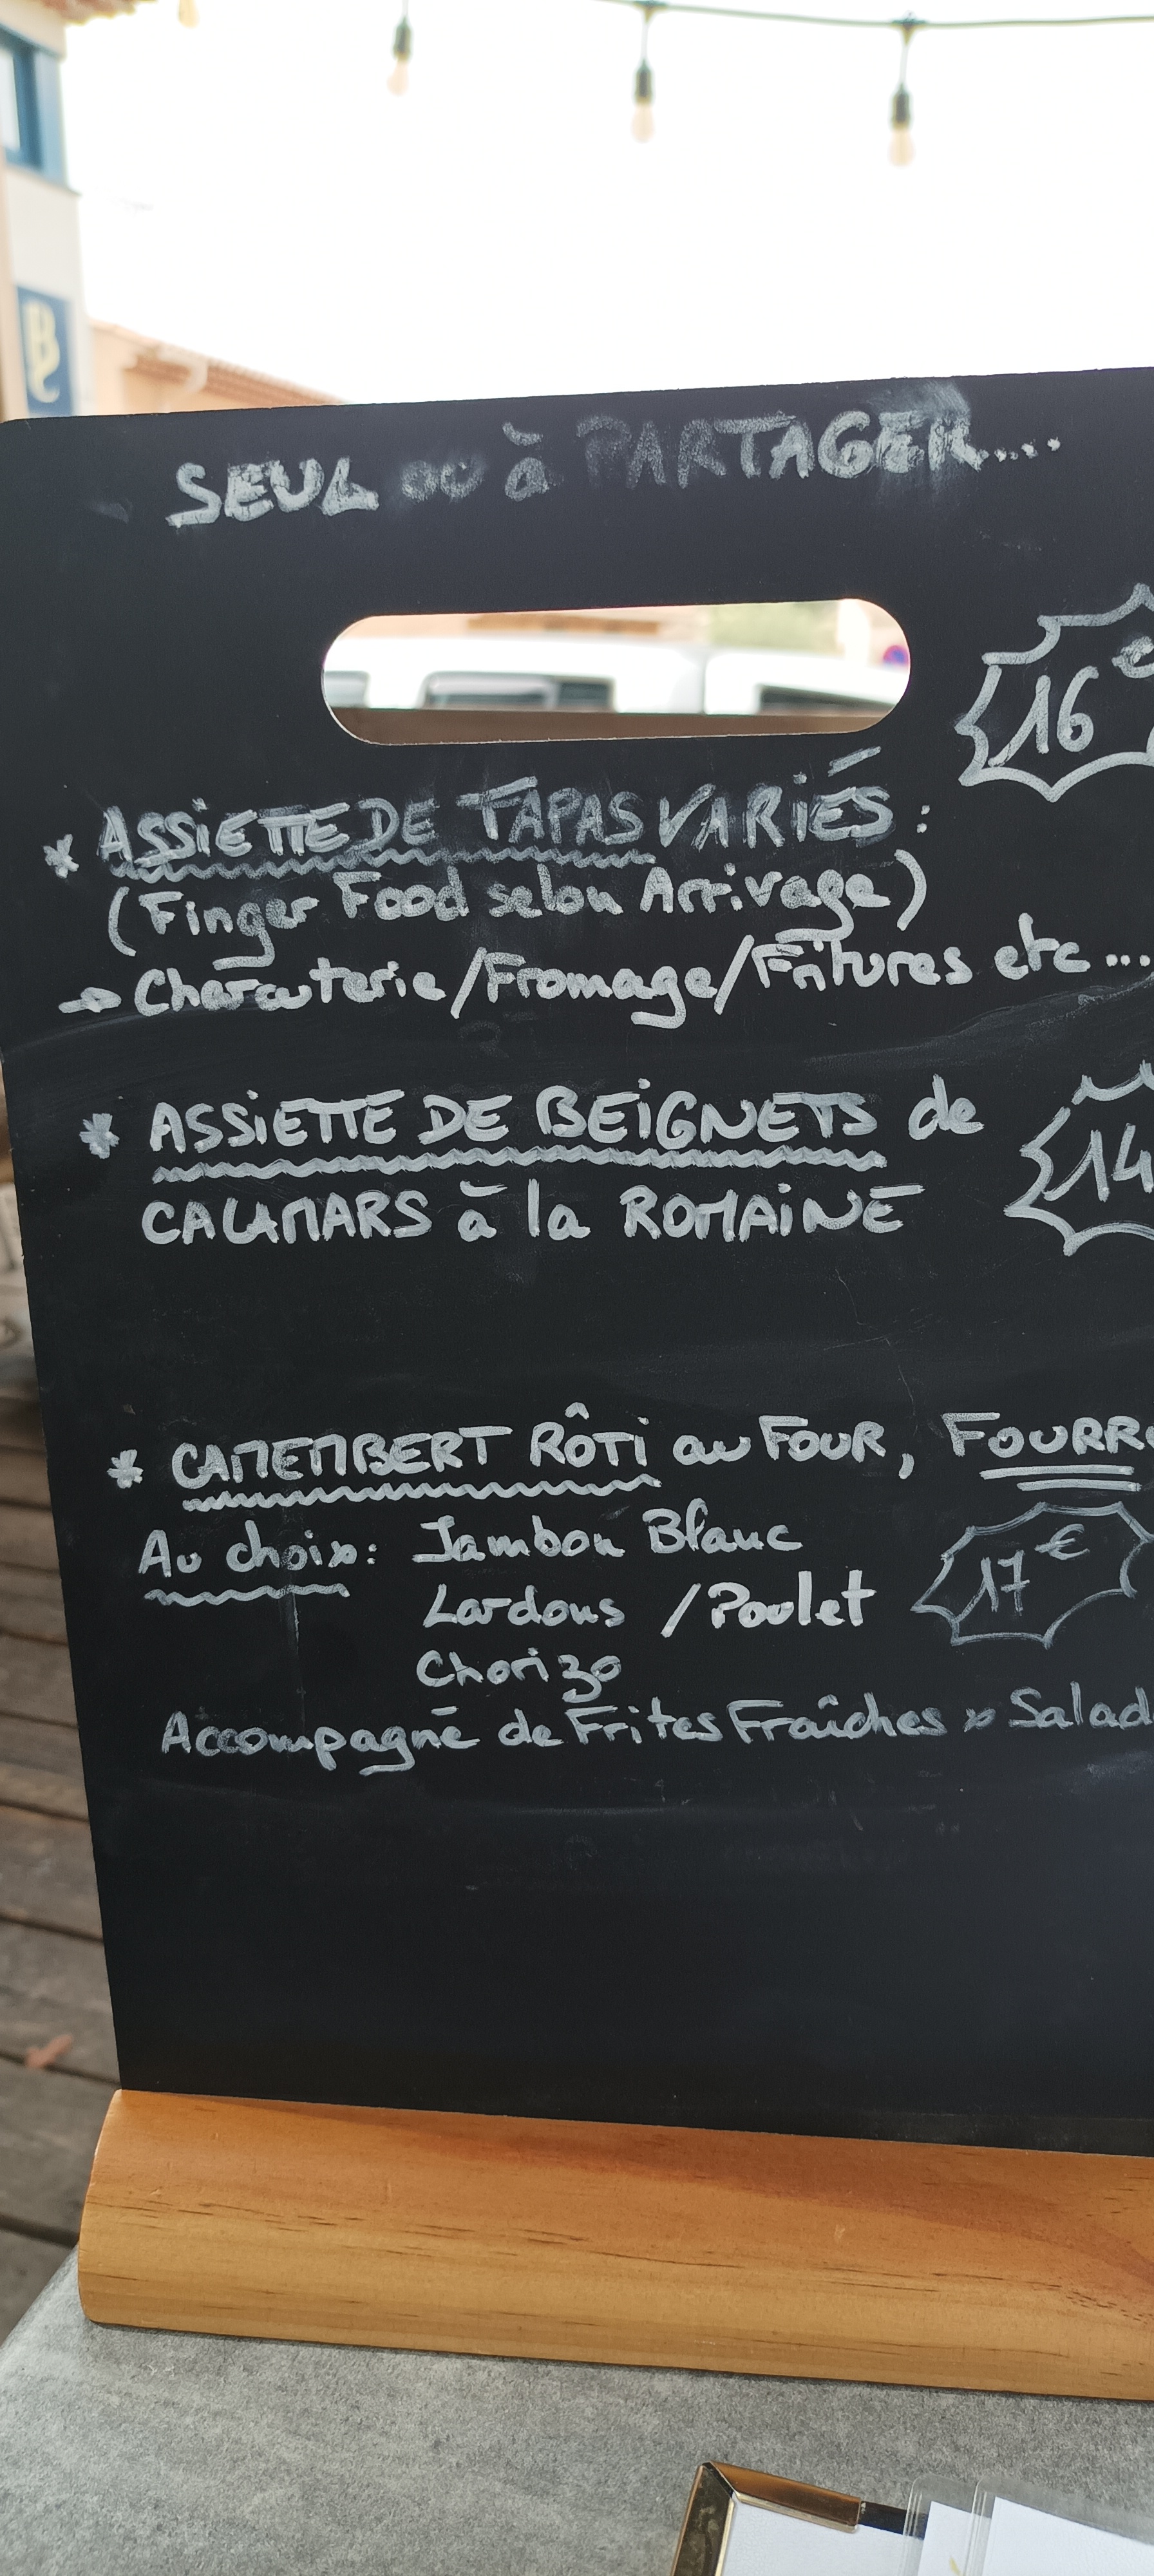 SEUL ou à PARTAGER....
16 €
* ASSIETTE DE TAPAS VARIÉS :
(Finger Food selon Arrivage)
→ Charcuterie/Fromage/Fritures etc...
* ASSIETTE DE BEIGNETS de
14
CALAMARS à la ROMAINE
* CAMEMBERT RÔTI au FOUR, FOURR
Au choix: Jambon Blanc
17 €
Lardons / Poulet
Chorizo
Accompagné de Frites Fraîches x Salad